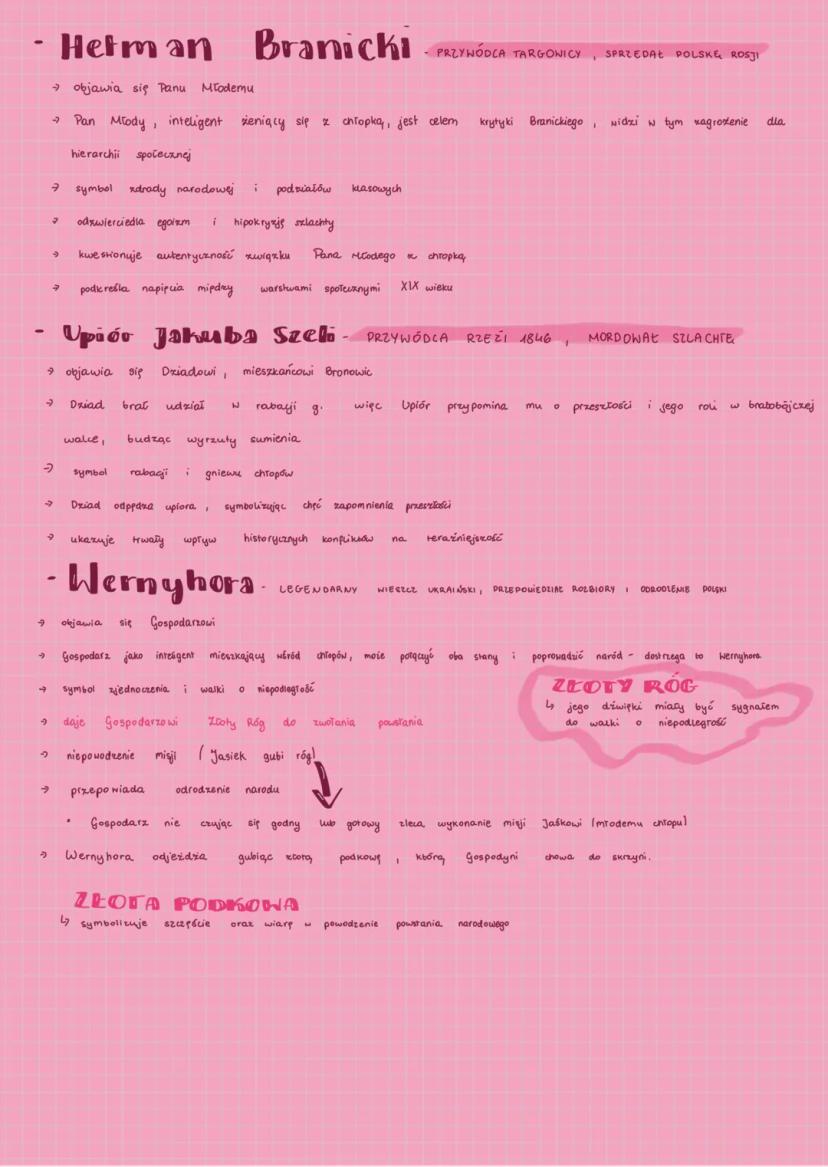 - Hetman Branicki - PRZYWÓDCA TARGOWICY, SPRZEDAŁ POLSKĘ ROSJI
→ objawia się Panu Młodemu
→ Pan Młody, inteligent żeniący się z chłopką, jest celem krytyki Branickiego, widzi w tym zagrożenie dla
hierarchii społecznej
→ symbol zdrady narodowej i podziałów klasowych
→ odzwierciedla egoizm i hipokryzję szlachty
→ kwestionuje autentyczność związku Pana Młodego z chłopką
→ podkreśla napięcia między warstwami społecznymi XIX wieku
- Upiór Jakuba Szeli - PRZYWÓDCA RZEZI 1846, MORDOWAŁ SZLACHTĘ
→ objawia się Dziadowi, mieszkańcowi Bronowic
→ Dziad brał udział w rabacji g. więc Upiór przypomina mu o przeszłości i jego roli w bratobójczej
walce, budząc wyrzuty sumienia
→ symbol rabacji i gniewu chłopów
→ Dziad odpędza upiora, symbolizując chęć zapomnienia przeszłości
→ ukazuje trwały wpływ historycznych konfliktów na teraźniejszość
- Wernyhora - LEGENDARNY WIESZCZ UKRAIŃSKI, PRZEPOWIEDZIAŁ ROZBIORY I ODRODZENIE POLSKI
→ objawia się Gospodarzowi
→ Gospodarz jako inteligent mieszkający wśród chłopów, może połączyć oba stany i poprowadzić naród - dostrzega to Wernyhora
→ symbol zjednoczenia i walki o niepodległość
ZŁOTY RÓG
↳ jego dźwięki miały być sygnałem
do walki o niepodległość
→ daje Gospodarzowi Złoty Róg do zwołania powstania
→ niepowodzenie misji (Jasiek gubi róg)
→ przepowiada odrodzenie narodu
• Gospodarz nie czując się godny lub gotowy zleca wykonanie misji Jaśkowi (młodemu chłopu)
→ Wernyhora odjeżdża gubiąc złotą podkowę, którą Gospodyni chowa do skrzyni.
ZŁOTA PODKOWA
↳ symbolizuje szczęście oraz wiarę w powodzenie powstania narodowego